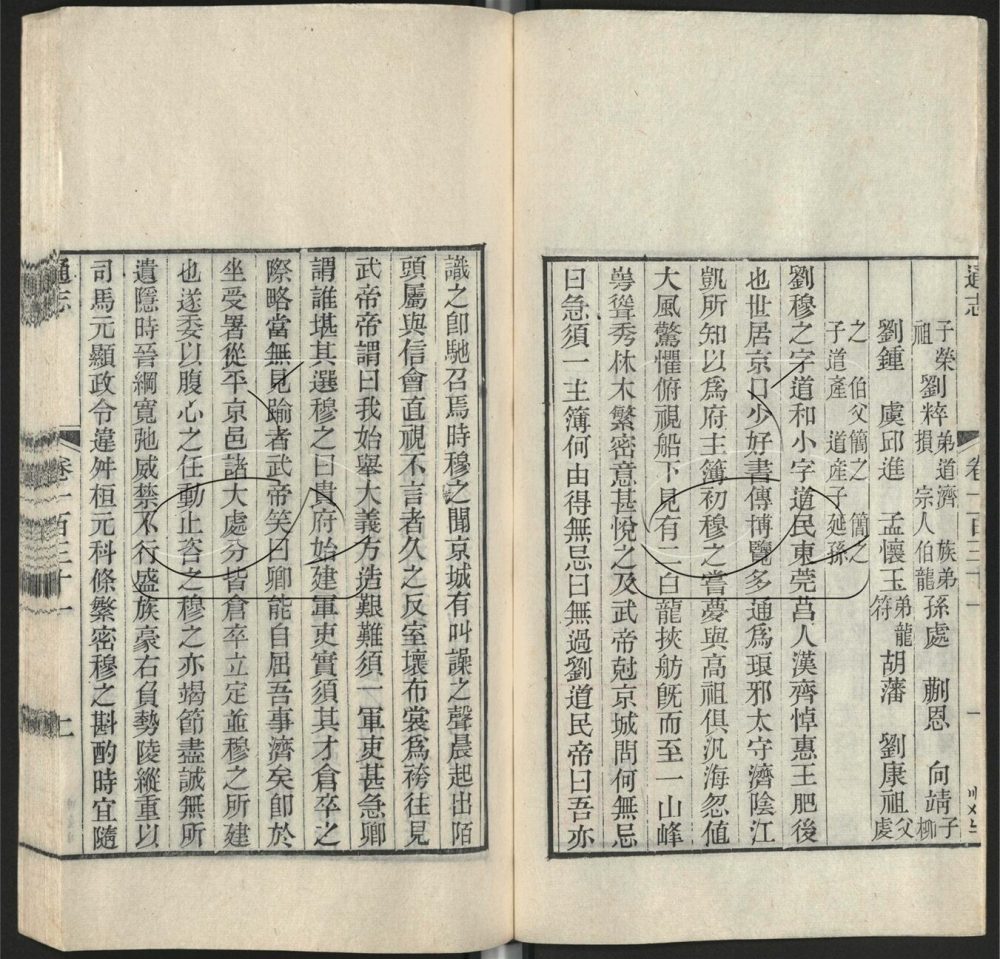 通志
卷一百三十一
一
子榮祖 劉粹 弟道濟 族弟損 宗人伯龍 孫處 蒯恩 向靖 子柳
劉鍾 虞邱進 孟懷玉 弟龍符 胡藩 劉康祖 父虔
之 伯父簡之 簡之子道產 道產子延孫
劉穆之字道和小字道民東莞莒人漢齊悼惠王肥後
也世居京口少好書傳博覽多通爲琅邪太守濟陰江
凱所知以爲府主簿初穆之嘗夢與高祖俱汎海忽值
大風驚懼俯視船下見有二白龍挾舫旣而至一山峰
崿聳秀林木繁密意甚悅之及武帝尅京城問何無忌
曰急須一主簿何由得無忌曰無過劉道民帝曰吾亦
識之卽馳召焉時穆之聞京城有叫譟之聲晨起出陌
頭屬與信會直視不言者久之反室壞布裳爲袴往見
武帝帝謂曰我始舉大義方造艱難須一軍吏甚急卿
謂誰堪其選穆之曰貴府始建軍吏實須其才倉卒之
際略當無見踰者武帝笑曰卿能自屈吾事濟矣卽於
坐受署從平京邑諸大處分皆倉卒立定並穆之所建
也遂委以腹心之任動止咨之穆之亦竭節盡誠無所
遺隱時晉綱寬弛威禁不行盛族豪右負勢陵縱重以
司馬元顯政令違舛桓元科條繁密穆之斟酌時宜隨
通志
卷一百三十一